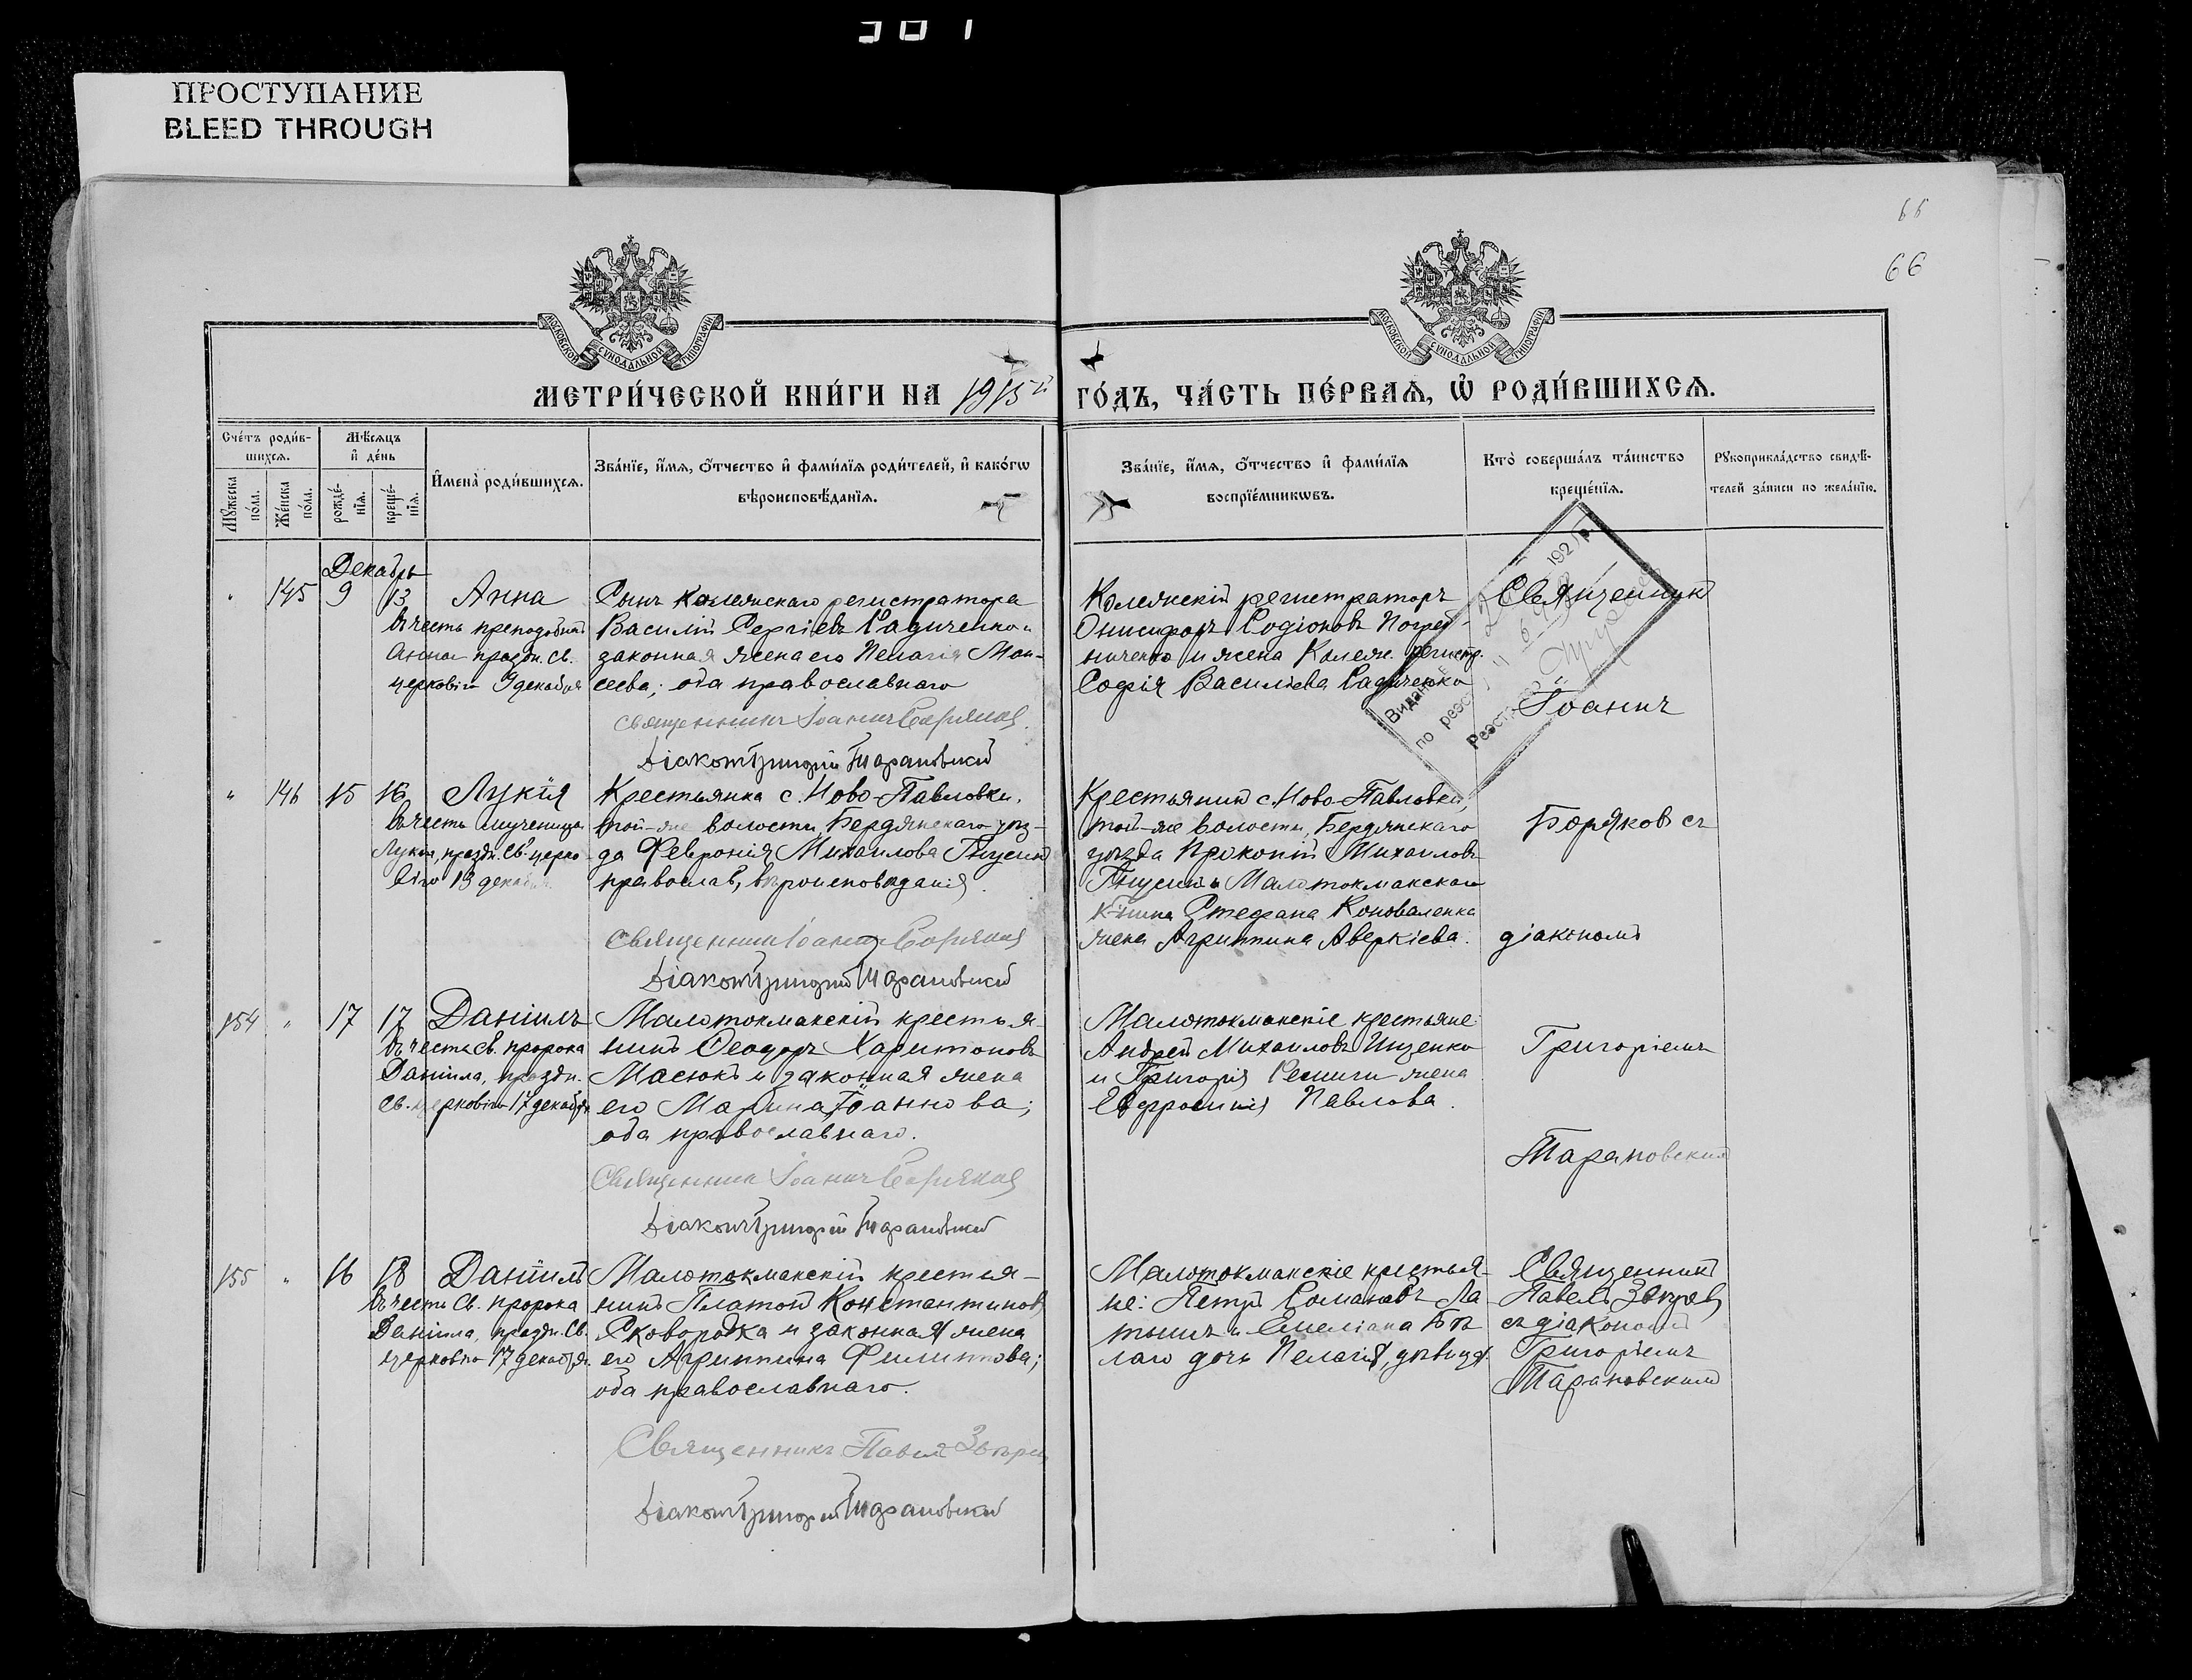 ПРОСТУПАНИЕ
BLEED THROUGH
66
МОСКОВСКОЙ СѴНОДАЛЬНОЙ ТИПОГРАФІИ
МОСКОВСКОЙ СѴНОДАЛЬНОЙ ТИПОГРАФІИ
МЕТРИ́ЧЕСКОЙ КНИ́ГИ НА 1915й
ГО́ДЪ, ЧА́СТЬ ПЕ́РВАѦ, Ѡ҆ РОДИ́ВШИХСѦ.
Сче́тъ роди́в-
шихсѧ.
Мꙋ́жеска
по́ла.
Же́нска
по́ла.
Мѣ́сѧцъ
и҆ де́нь
рожде́-
нїѧ.
креще́-
нїѧ.
И҆мена̀ роди́вшихсѧ.
Зва́нїе, и҆́мѧ, ѻ҆́тчество и҆ фами́лїѧ роди́телей, и҆ како́гѡ
вѣроисповѣ́данїѧ.
Зва́нїе, и҆́мѧ, ѻ҆́тчество и҆ фами́лїѧ
воспрїе́мникѡвъ.
Кто̀ соверша́лъ та́инство
креще́нїѧ.
Рꙋкоприкла́дство свидѣ́-
телей за́писи по жела́нїю.
Декабрь
" 145 9 13 Анна
въ честь преподобной
Анны праздн. Св.
церковію 9 декабря
Сынъ коллежскаго регистратора
Василій Сергіевъ Радиченко и
законная жена его Пелагія Мои-
сеева; оба православнаго
Священникъ Іоаннъ Боряковъ
Діаконъ Григорій Тарановскій
Колежскій регистраторъ
Онисифоръ Родіоновъ Погреб-
ниченко и жена Колеж. регистр.
Софія Василіева Радиченко
Священникъ
Іоаннъ
Видано
по реэст
192 р.
" 146 15 16 Лукія
въ честь мученицы
Лукіи, праздн. Св. церко-
вію 13 декабря
Крестьянка с. Ново-Павловки,
той-же волости, Бердянскаго уѣз-
да Февронія Михаилова
православ, вѣроисповѣданія.
Священникъ Іоаннъ Боряковъ
Діаконъ Григорій Тарановскій
Крестьянинъ с. Ново-Павловки,
той-же волости, Бердянскаго
уѣзда Прокопій Михаиловъ
Малотокмакскаго
Стефана Коноваленка
жена Агриппина Аверкіева.
Боряковъ съ
діакономъ
154 " 17 17 Даніилъ
въ честь св. пророка
Даніила, праздн.
св. церковію 17 декабря
Малотокмакскій крестья-
нинъ Ѳеодоръ Харитоновъ
Масюкъ и законная жена
его Марина Іоаннова;
оба православнаго.
Священникъ Іоаннъ Боряковъ
Діаконъ Григорій Тарановскій
Малотокмакскіе крестьяне:
Андрей Михаиловъ Ищенко
и Григорія жена
Евфросинія Павлова.
Григоріемъ
Тарановскимъ
155 " 16 18 Даніилъ
въ честь Св. пророка
Даніила, праздн. Св.
церковію 17 декабря
Малотокмакскій крестья-
нинъ Платонъ Константиновъ
Сковородка и законная жена
его Агриппина Филиппова;
оба православнаго.
Священникъ Павелъ Звѣревъ
Діаконъ Григорій Тарановскій
Малотокмакскіе крестья-
не: Петръ Романовъ Ла-
и Емеліана Бѣ-
лаго дочь Пелагія, дѣвица.
Священникъ
Павелъ Звѣревъ
съ діакономъ
Григоріемъ
Тарановскимъ